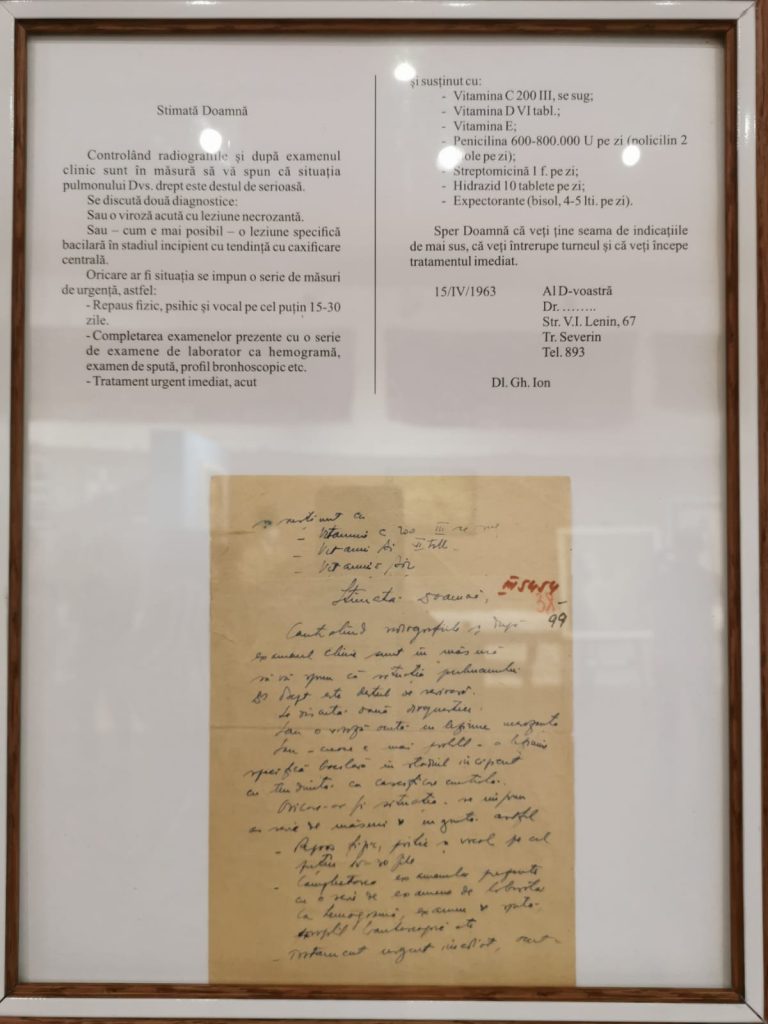 Stimată Doamnă
Controlând radiografiile și după examenul
clinic sunt în măsură să vă spun că situația
pulmonului Dvs. drept este destul de serioasă.
Se discută două diagnostice:
Sau o viroză acută cu leziune necrozantă.
Sau – cum e mai posibil – o leziune specifică
bacilară în stadiul incipient cu tendință cu caxificare
centrală.
Oricare ar fi situația se impun o serie de măsuri
de urgență, astfel:
- Repaus fizic, psihic și vocal pe cel puțin 15-30
zile.
- Completarea examenelor prezente cu o serie
de examene de laborator ca hemogramă,
examen de spută, profil bronhoscopic etc.
- Tratament urgent imediat, acut
și susținut cu:
- Vitamina C 200 III, se sug;
- Vitamina D VI tabl.;
- Vitamina E;
- Penicilina 600-800.000 U pe zi (policilin 2
pe zi);
- Streptomicină 1 f. pe zi;
- Hidrazid 10 tablete pe zi;
- Expectorante (bisol, 4-5 lti. pe zi).
Sper Doamnă că veți ține seama de indicațiile
de mai sus, că veți întrerupe turneul și că veți începe
tratamentul imediat.
15/IV/1963 Al D-voastră
Dr. ........
Str. V.I. Lenin, 67
Tr. Severin
Tel. 893
Dl. Gh. Ion
și susținut cu
- Vitamina C 200 III se
- Vitamina VI
- Vitamina
Stimată Doamnă,
99
Controlând radiografiile și după
examenul clinic sunt în măsură
să vă spun că situația pulmonului
Ds drept este destul de serioasă.
Se discută două diagnostice:
Sau o viroză acută cu leziune necrozantă
Sau – cum e mai posibil – o leziune
specifică bacilară în stadiul incipient
cu tendință cu caxificare centrală.
Oricare ar fi situația se impun
o serie de măsuri de urgență astfel
- Repaus fizic, psihic și vocal pe cel
puțin 15-30 zile
- Completarea examenelor prezente
cu o serie de examene de laborator
ca hemogramă, examen de spută,
profil bronhoscopic etc
- Tratament urgent imediat, acut